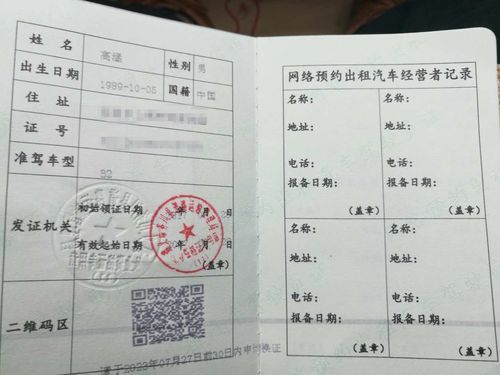 姓 名 高涵 性别 男
出生日期 1989-10-05 国籍 中国
住 址
证 号
准驾车型 B2
发证机关
初始领证日期 年 月 日
有效起始日期 年 月 日
(盖章)
二维码区
请于2023年07月27日前30日内申请换证
网络预约出租汽车经营者记录
名称: 名称:
地址: 地址:
电话: 电话:
报备日期: 报备日期:
(盖章) (盖章)
名称: 名称:
地址: 地址:
电话: 电话:
报备日期: 报备日期:
(盖章) (盖章)